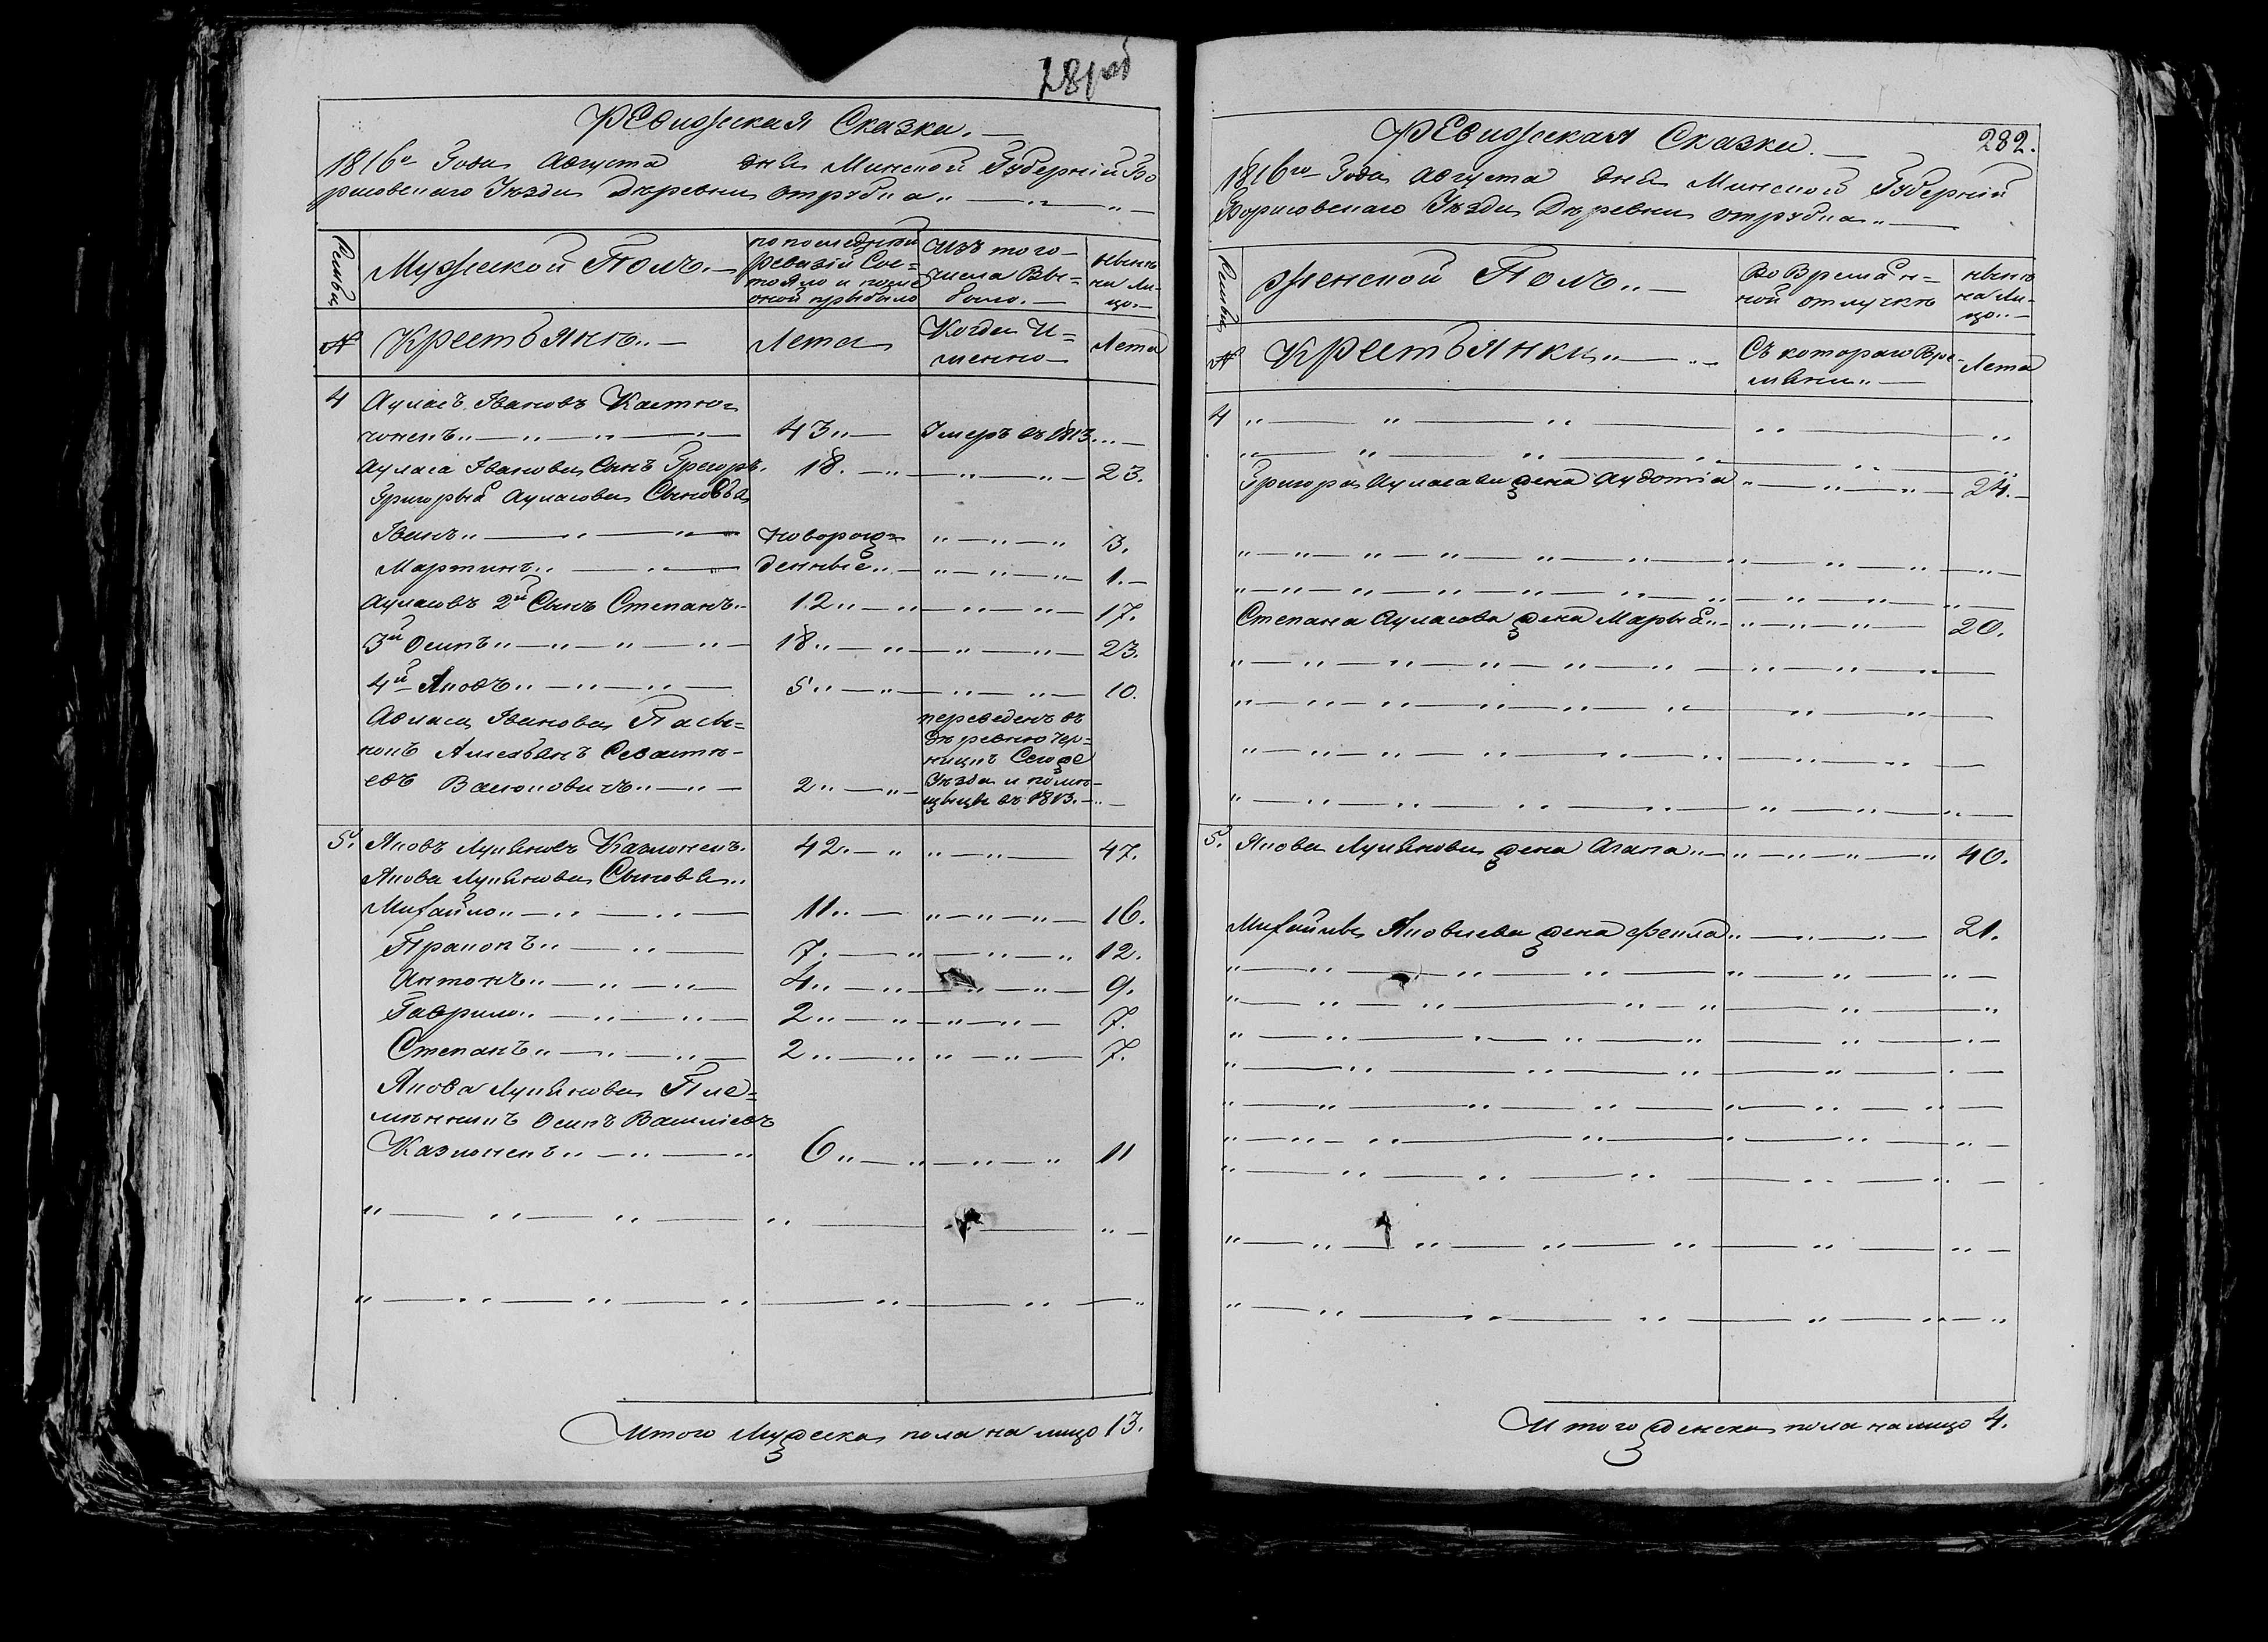 281 об
Ревижская Сказка. —
1816го Года Августа дня Минской Губернiй Бо
рисовскаго Уезда Деревни Отрубка „ — „ — „ —
Семьи
Мужеской Полъ. —
по последней
Ревизiй Сос=
тояло и после
оной прыбыло
Изъ того —
числа Вы=
было. —
ныне
на Ли-
цо. —
№
Крестьяне „ —
Лета
Когда И=
менно —
Лета
4 Ауласъ Iвановъ Кастю=
чонекъ „ — „ — „ — „ 43 „ — Умеръ въ 1813 „ —
Ауласа Iванова Сынъ Грегоръ. 18. — „ — „ — „ — 23.
Григорыя Ауласова Сыновья
Iванъ „ — „ — „ — новорож= „ — „ — „ 3.
Мартинъ „ — „ — денные „ — „ — „ — „ — 1. —
Ауласовъ 2й Сынъ Степанъ „ 12 „ — „ — „ — „ — 17.
3й Осипъ „ — „ — „ — „ — 18 „ — „ — „ — „ — 23.
4й Яковъ „ — „ — „ — 5 „ — „ — „ — „ — 10.
Авласа Iванова Пасы=
нокъ Амельянъ Севастю-
евъ „ — „ — 2 „ — „ —
переведенъ въ
деревню Чер=
Сего же
Уезда и поме-
щыцы въ 1813. — „ —
5. Яковъ Лукяновъ Казлонекъ. 42. — „ „ — „ — 47.
Якова Лукянова Сыновья „
Михайло „ — „ — „ — 11 „ — „ — „ — „ — 16.
Пракопъ „ — „ — 7. — „ — „ — „ 12.
Антонъ „ — „ — „ — 4 „ — „ — „ — „ — 9.
Гаврило „ — „ — „ — 2 „ — „ — „ — „ — 7.
Степанъ „ — „ — „ — 2 „ — „ „ — „ — 7.
Якова Лукянова Пле=
менникъ Осипъ Васильевъ
Казлонекъ „ — „ — „ 6 „ — „ — „ — „ 11
„ — „ — „ — „ — — „ —
„ — „ — „ — „ — „ — „ — „
Итого Мужеска пола на лицо 13.
282.
Ревижская Сказка. —
1816го Года Августа дня Минской Губернiй
Борисовскаго Уезда Деревни Отрубка „ —
Семьи
Женской Полъ „ —
Во Времян=
ной отлучке
ныне
на Ли-
цо „ —
№
Крестьянки „ — „ —
Съ котораго Вре-
мяни „ —
Лета
4 „ — „ — „ — „ — „
„ — „ — „ — „ — „ — „
Григора Ауласава жена Аудотiя „ — „ — „ — 24. —
„ — „ — „ — „ — „ — „ — „ — „ — „
„ — „ — „ — „ — „ — „ — „ — „ — „ —
Степана Ауласова жена Марыя „ — „ — „ — „ — 20.
„ — „ — „ — „ — „ — „ — „ — „ —
„ — „ — „ — „ — „ — „ — „ —
„ — „ — „ — „ — „ — „ — „ —
„ — „ — „ — „ — „ — „ — „ — „ —
5. Якова Лукянова жена Агапа „ — „ — „ — „ — „ 40.
Михайлы Яковлева жена Фекла „ — „ — „ — 21.
„ — „ — „ — „ — „ — „ — „ —
„ — „ — „ — „ — „ — „ — „
„ — „ — „ — „ — „ — „ — „ —
„ — „ — „ — „ — „ — „ —
„ — „ — „ — „ — „ — „ — „ — „ —
„ — „ — „ — „ — „ — „ — „ —
„ — „ — „ — „ — „ — „ — „ —
„ — „ — „ — „ — „ — „ — „ —
„ — „ — „ — „ — „ — „ — „
Итого женска пола на лицо 4.